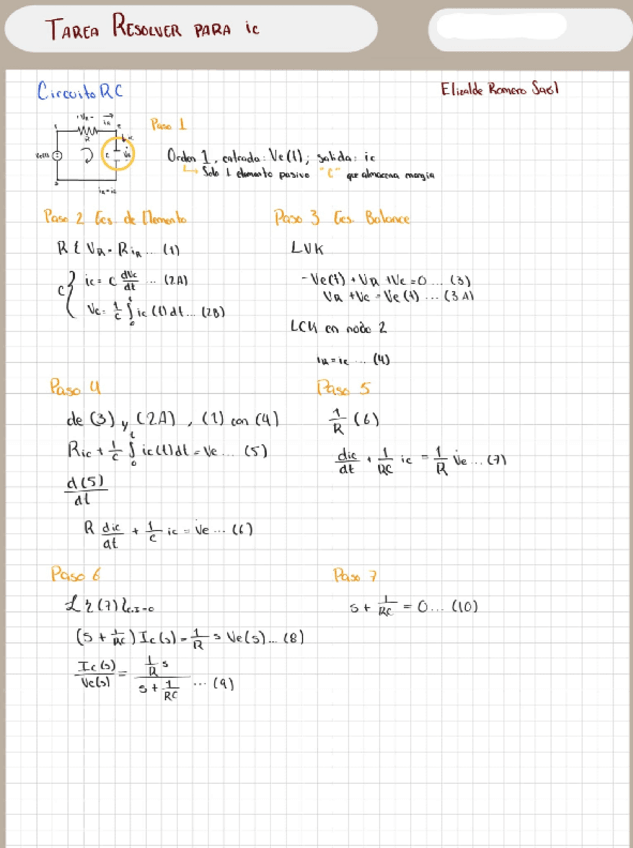 TAREA RESOLVER PARA ic
Circuito RC
Elizalde Romero Saúl
Paso 1
Orden 1, entrada: Ve(t); salida: ic
Solo 1 elemento pasivo "C" que almacena energía
Paso 2 Ecs. de Elemento
Paso 3 Ecs. Balance
R { VR = R iR ... (1)
C { ic = C dVc/dt ... (2A)
Vc = 1/C ∫₀ᵗ ic(t) dt ... (2B)
LVK
-Ve(t) + VR + Vc = 0 ... (3)
VR + Vc = Ve(t) ... (3A)
LCK en nodo 2
iR = ic ... (4)
Paso 4
de (3) y (2A), (1) con (4)
Ric + 1/C ∫₀ᵗ ic(t) dt = Ve ... (5)
d(5)/dt
R dic/dt + 1/C ic = V̇e ... (6)
Paso 5
1/R (6)
dic/dt + 1/RC ic = 1/R V̇e ... (7)
Paso 6
ℒ{(7)} C.I=0
(s + 1/RC) Ic(s) = 1/R s Ve(s) ... (8)
Ic(s)/Ve(s) = (1/R s)/(s + 1/RC) ... (9)
Paso 7
s + 1/RC = 0 ... (10)